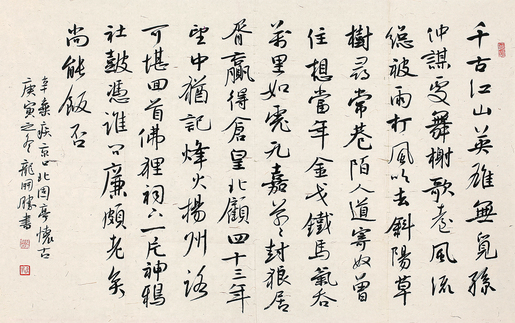 千古江山英雄無覓孫
仲謀處舞榭歌臺風流
總被雨打風吹去斜陽草
樹尋常巷陌人道寄奴曾
住想當年金戈鐵馬氣吞
萬里如虎元嘉草草封狼居
胥贏得倉皇北顧四十三年
望中猶記烽火揚州路
可堪回首佛狸祠下一片神鴉
社鼓憑誰問廉頗老矣
尚能飯否
辛棄疾京口北固亭懷古
庚寅之冬龍開勝書